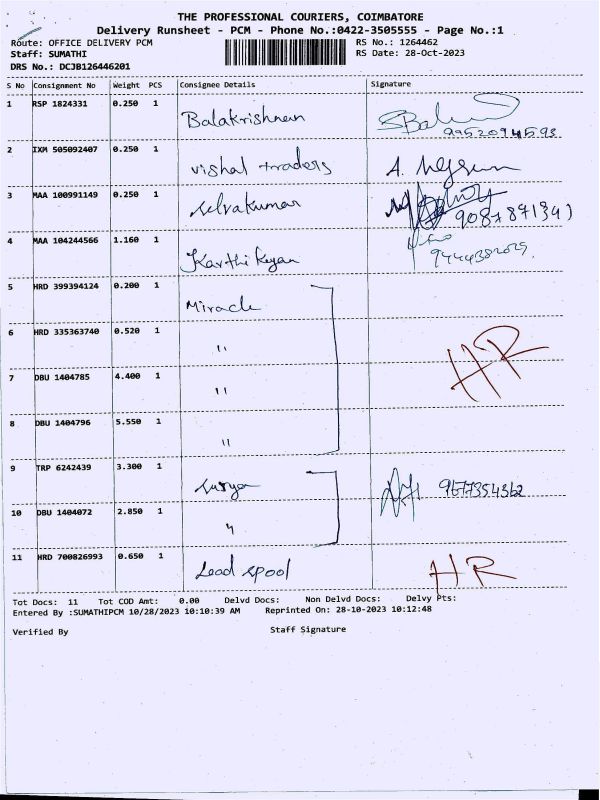 THE PROFESSIONAL COURIERS, COIMBATORE
Delivery Runsheet - PCM - Phone No.:0422-3505555 - Page No.:1
Route: OFFICE DELIVERY PCM RS No.: 1264462
Staff: SUMATHI RS Date: 28-Oct-2023
DRS No.: DCJB126446201
S No Consignment No Weight PCS Consignee Details Signature
1 RSP 1824331 0.250 1 Balakrishnan 9952094593
2 IXM 505092407 0.250 1 vishal traders
3 MAA 100991149 0.250 1 selvakumar
4 MAA 104244566 1.160 1 Karthikeyan
5 HRD 399394124 0.200 1 Miracle
6 HRD 335363740 0.520 1 " HR
7 DBU 1404785 4.400 1 "
8 DBU 1404796 5.550 1 "
9 TRP 6242439 3.300 1 surya 9677354362
10 DBU 1404072 2.850 1 "
11 HRD 700826993 0.650 1 Lead spool HR
Tot Docs: 11 Tot COD Amt: 0.00 Delvd Docs: Non Delvd Docs: Delvy Pts:
Entered By :SUMATHIPCM 10/28/2023 10:10:39 AM Reprinted On: 28-10-2023 10:12:48
Verified By Staff Signature